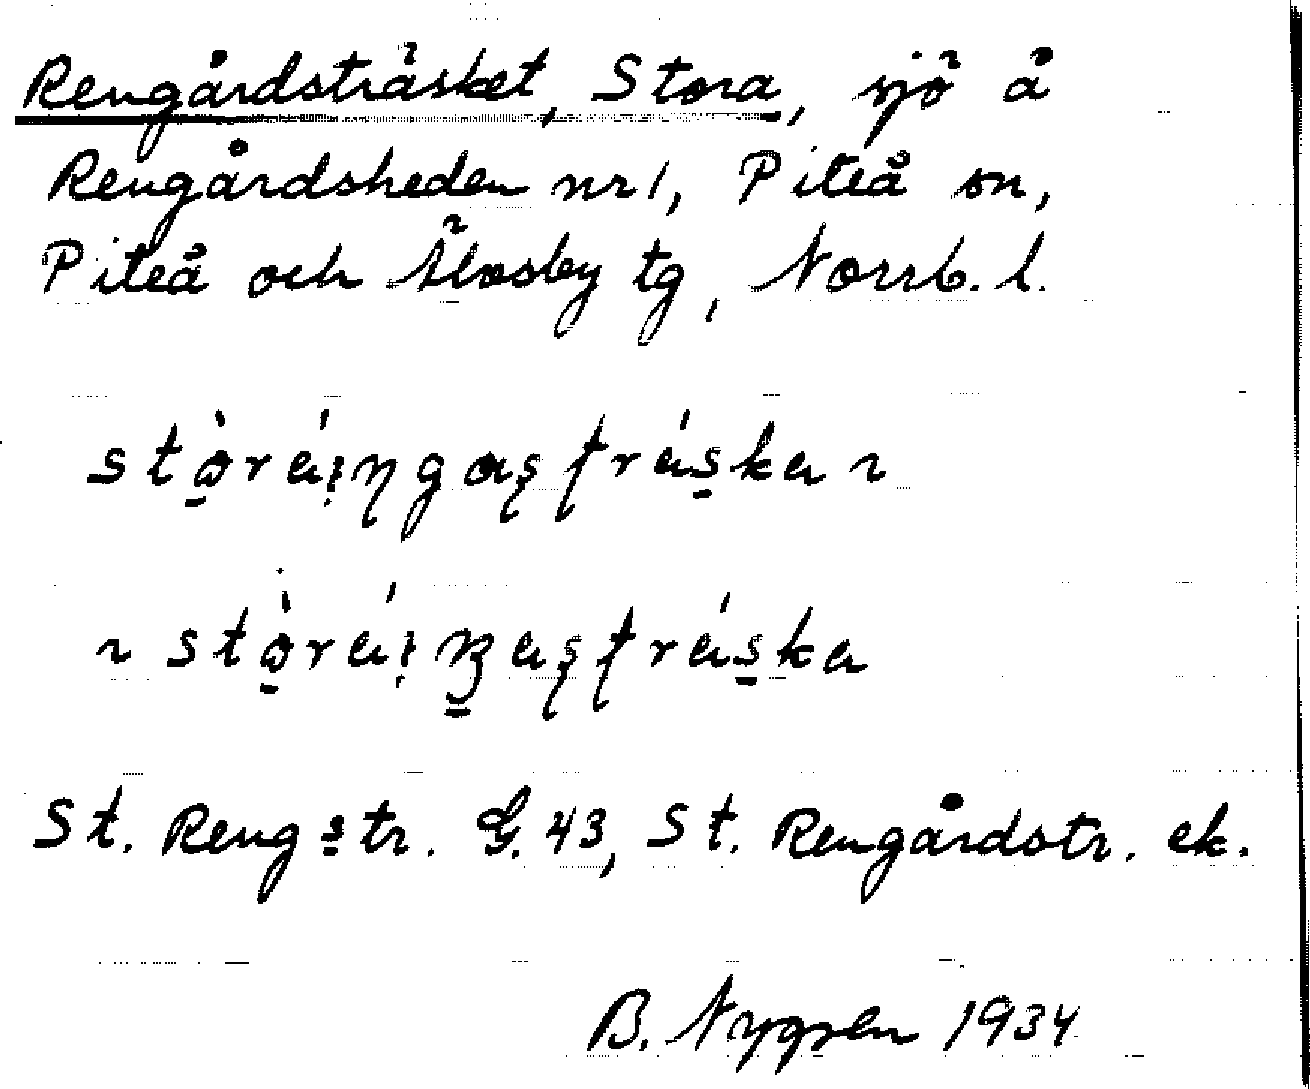 Rengårdsträsket, Stora, sjö å
Rengårdsheden nr 1, Piteå sn,
Piteå och Älvsby tg, Norrb. l.
St. Reng:str. G. 43, St. Rengårdstr. ek.
B. Nygren 1934